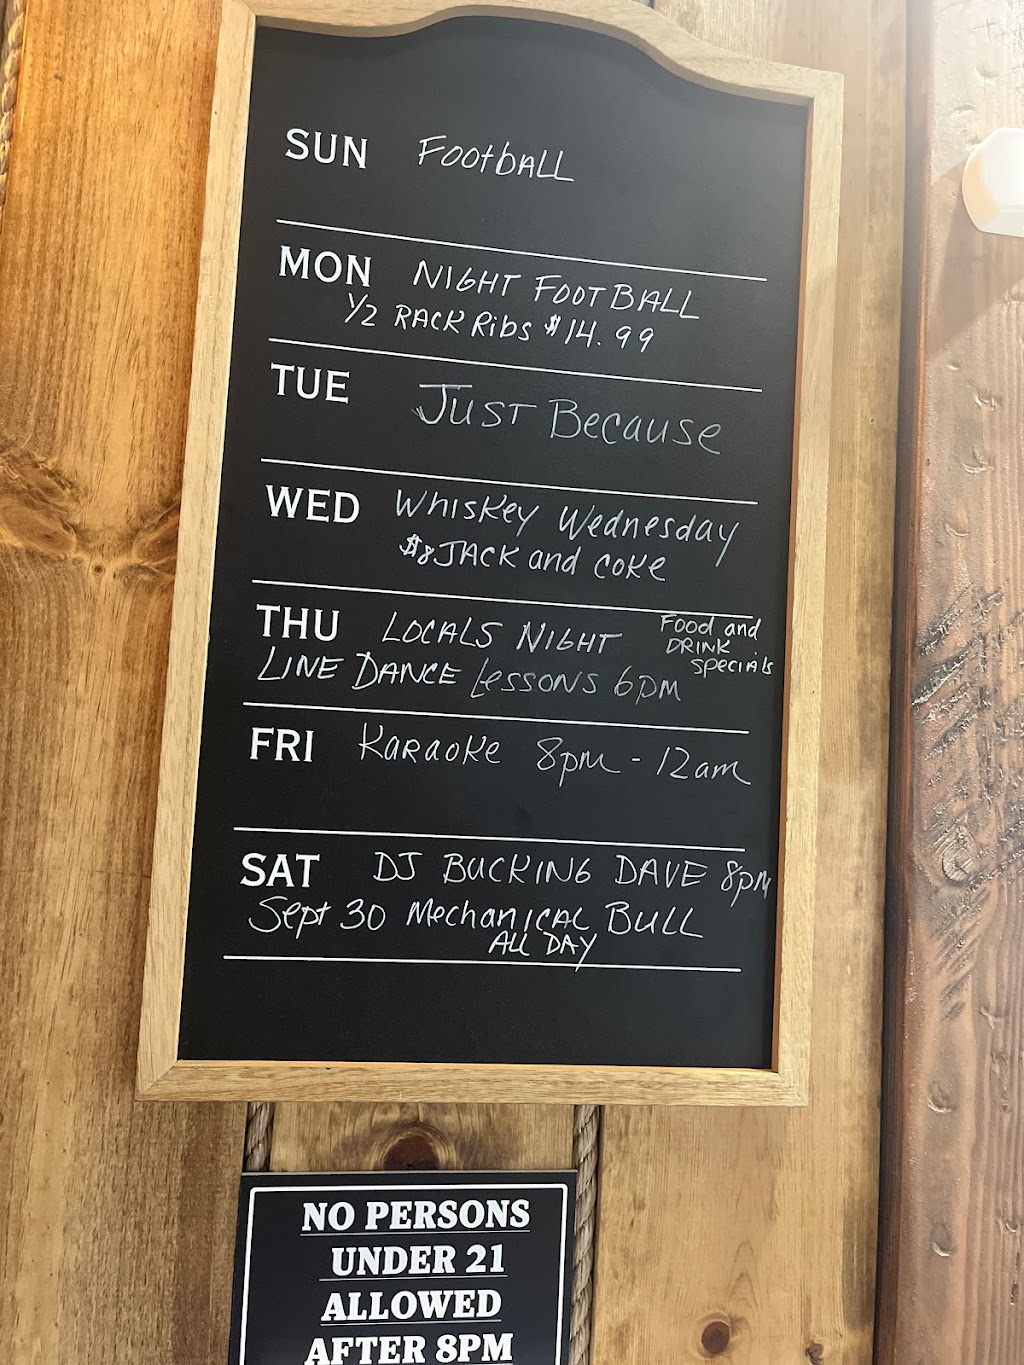 SUN FootbALL
MON NIGHT FOOTBALL
1/2 RACK Ribs $14.99
TUE JUST Because
WED Whiskey Wednesday
$8 JACK and coke
THU LOCALS NIGHT Food and
DRINK
specials
LINE DANCE Lessons 6pm
FRI Karaoke 8pm - 12am
SAT DJ BUCKING DAVE 8pm
Sept 30 Mechanical BULL
ALL DAY
NO PERSONS
UNDER 21
ALLOWED
AFTER 8PM